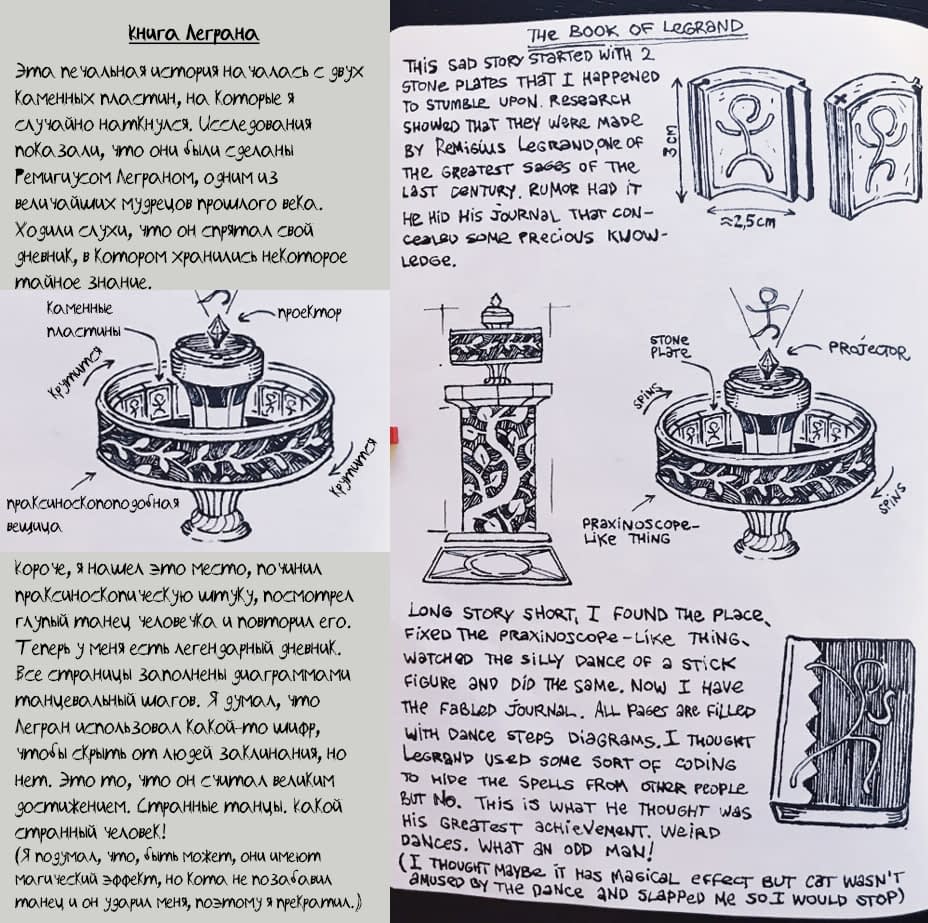 Книга Леграна
Эта печальная история началась с двух
каменных пластин, на которые я
случайно наткнулся. Исследования
показали, что они были сделаны
Ремигиусом Леграном, одним из
величайших мудрецов прошлого века.
Ходили слухи, что он спрятал свой
дневник, в котором хранились некоторое
тайное знание.
каменные
пластины
проектор
крутится
крутится
праксиноскопоподобная
вещица
Короче, я нашел это место, починил
праксиноскопическую штуку, посмотрел
глупый танец человечка и повторил его.
Теперь у меня есть легендарный дневник.
Все страницы заполнены диаграммами
танцевальный шагов. Я думал, что
Легран использовал какой-то шифр,
чтобы скрыть от людей заклинания, но
нет. Это то, что он считал великим
достижением. Странные танцы. Какой
странный человек!
(Я подумал, что, быть может, они имеют
магический эффект, но кота не позабавил
танец и он ударил меня, поэтому я прекратил.)
THE BOOK OF LEGRAND
THIS SAD STORY STARTED WITH 2
STONE PLATES THAT I HAPPENED
TO STUMBLE UPON. RESEARCH
SHOWED THAT THEY WERE MADE
BY REMIGIUS LEGRAND, ONE OF
THE GREATEST SAGES OF THE
LAST CENTURY. RUMOR HAD IT
HE HID HIS JOURNAL THAT CON-
CEALED SOME PRECIOUS KNOW-
LEDGE.
3 cm
≈2,5cm
STONE
PLATE
PROJECTOR
SPINS
SPINS
PRAXINOSCOPE-
LIKE THING
LONG STORY SHORT, I FOUND THE PLACE,
FIXED THE PRAXINOSCOPE-LIKE THING,
WATCHED THE SILLY DANCE OF A STICK
FIGURE AND DID THE SAME. NOW I HAVE
THE FABLED JOURNAL. ALL PAGES ARE FILLED
WITH DANCE STEPS DIAGRAMS. I THOUGHT
LEGRAND USED SOME SORT OF CODING
TO HIDE THE SPELLS FROM OTHER PEOPLE
BUT NO. THIS IS WHAT HE THOUGHT WAS
HIS GREATEST ACHIEVEMENT. WEIRD
DANCES. WHAT AN ODD MAN!
(I THOUGHT MAYBE IT HAS MAGICAL EFFECT BUT CAT WASN'T
AMUSED BY THE DANCE AND SLAPPED ME SO I WOULD STOP)